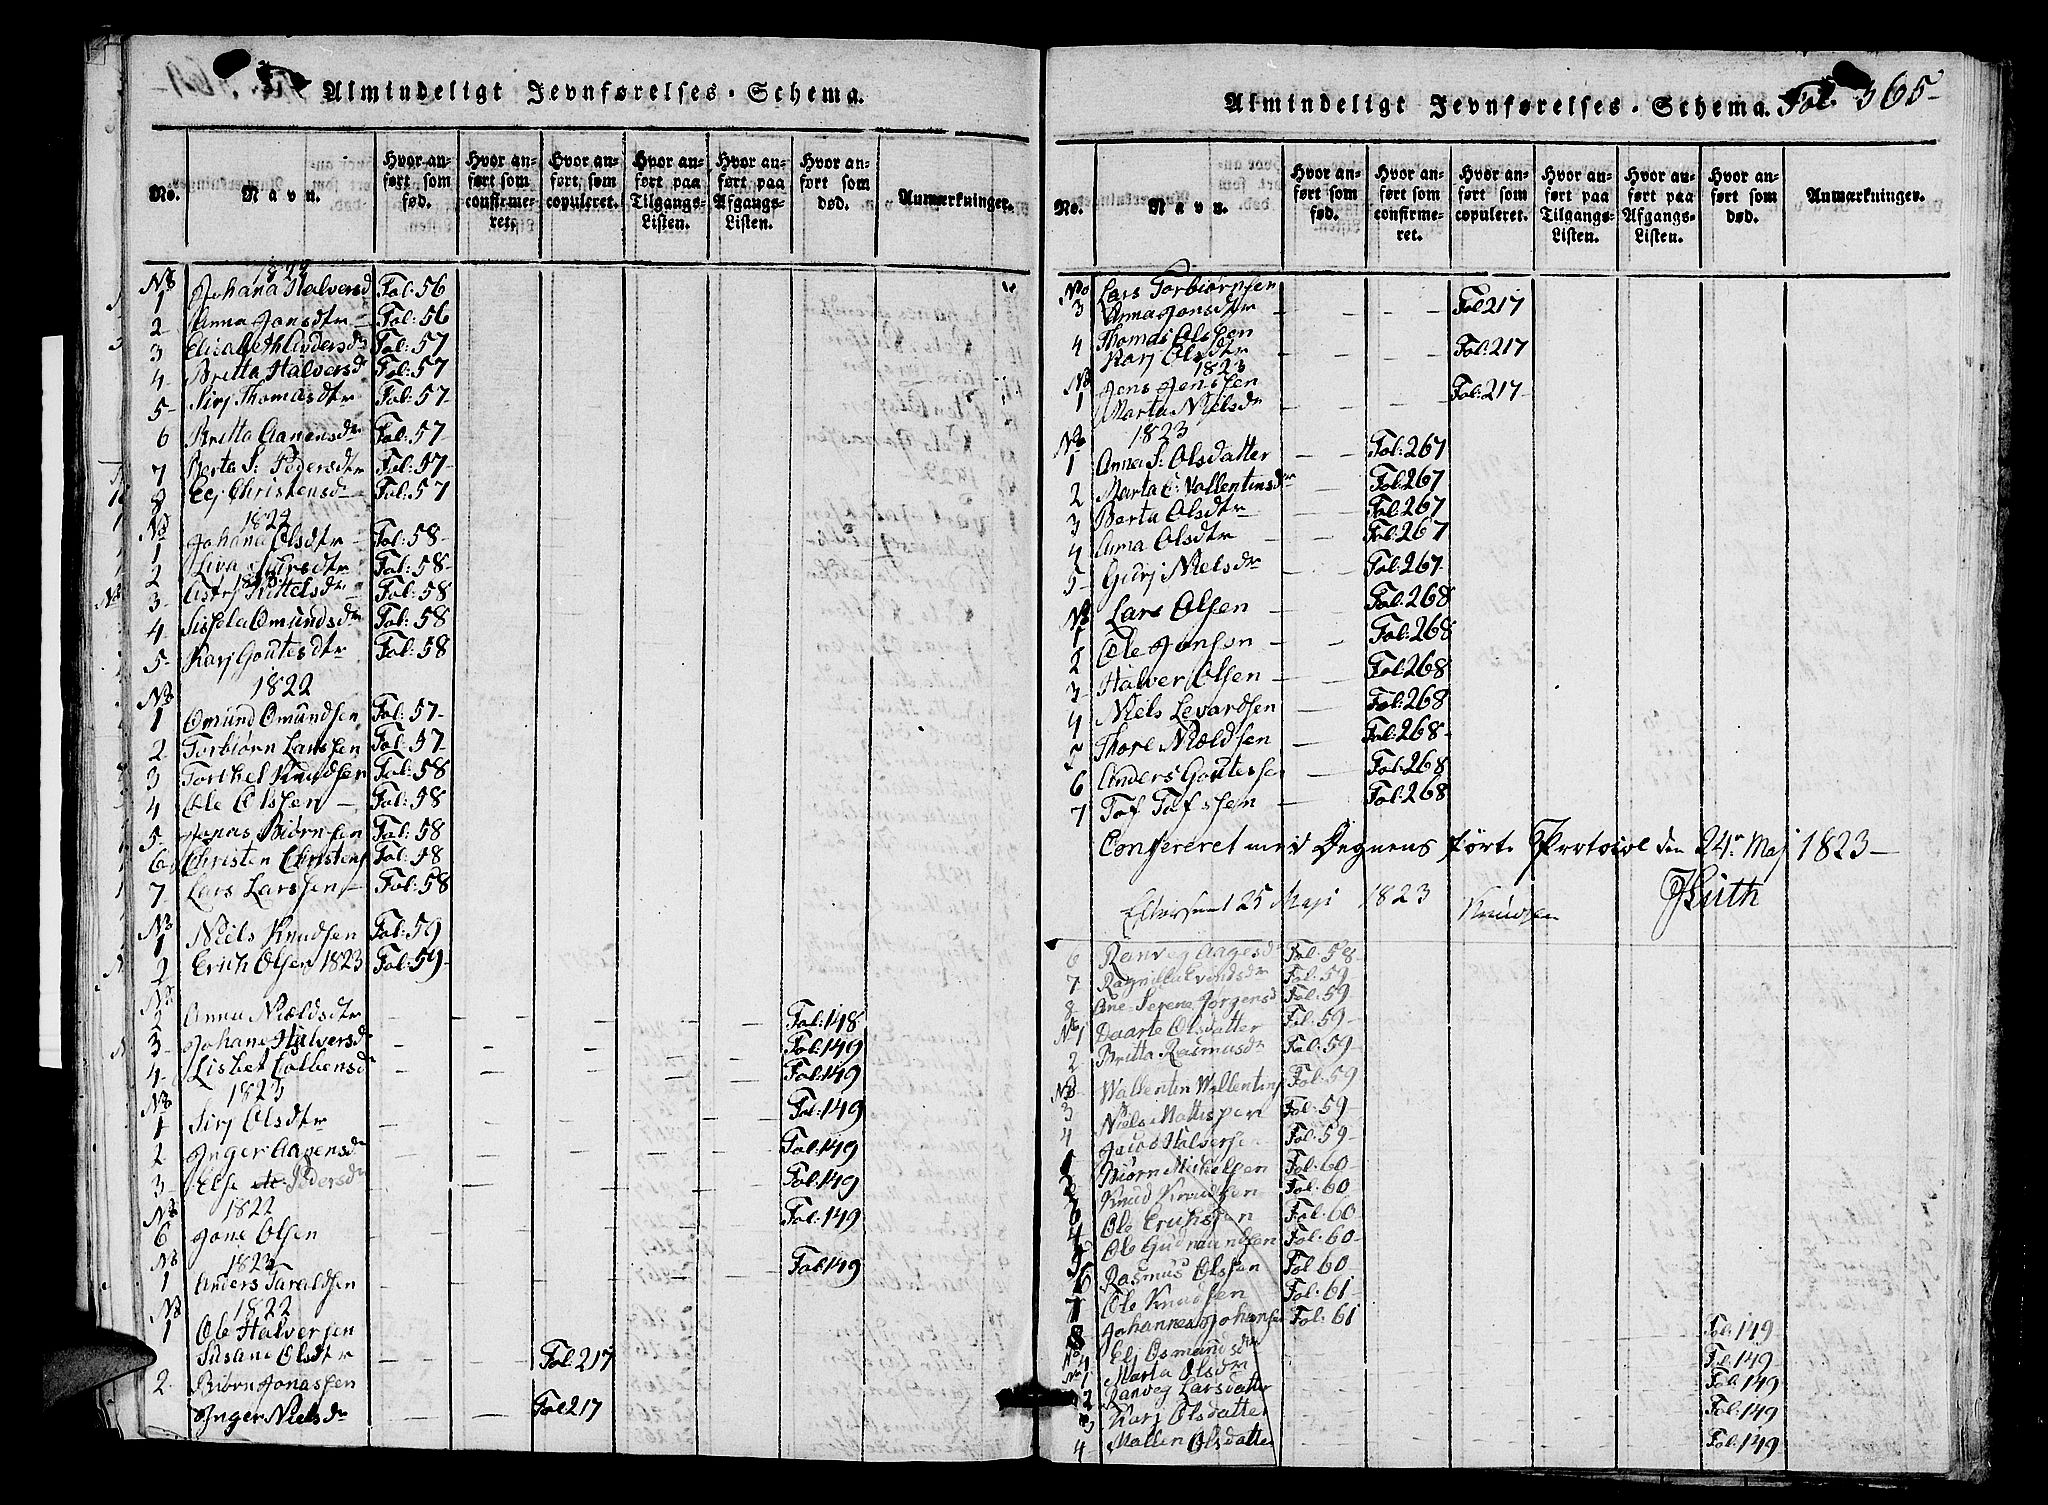 Almindeligt Jevnførelses-Schema.
No.
Navn.
Hvor anført som fød.
Hvor anført som confirmeret.
Hvor anført som copuleret.
Hvor anført paa Tilgangs-Listen.
Hvor anført paa Afgangs-Listen.
Hvor anført som død.
Anmærkninger.
No 1822
1 Johana Halversd Fol: 56
2 Anna Jonsdtr Fol: 56
3 Elisabeth Andersdr Fol: 57
4 Britta Halversd Fol: 57
5 Sirj Thomasdtr Fol: 57
6 Britta Aanensdr Fol: 57
7 Berta S: Pedersdtr Fol: 57
8 Eej Christensdr Fol: 57
No 1822
1 Johana Olsdtr Fol: 58
2 Liva Larsdtr Fol: 58
3 Astrj Kittelsdr Fol: 58
4 Sissela Omundsdr Fol: 58
5 Karj Goutesdtr Fol: 58
No 1822
1 Omund Omundsen Fol: 57
2 Torbiørn Larssen Fol: 57
3 Torkel Knudsen Fol: 58
4 Ole Olssen Fol: 58
5 Jonas Biørnsen Fol: 58
6 Christen Christens Fol: 58
7 Lars Larssen Fol: 58
No
1 Niels Knudsen Fol: 59
2 Erich Olsen 1823 Fol: 59
No
2 Anna Nieldsdtr Fol: 148
3 Johane Halversdr Fol: 149
4 Lisbet Colbensdr Fol: 149
No 1823
1 Sirj Olsdtr Fol: 149
2 Inger Aanensdr Fol: 149
3 Else Pedersdr Fol: 149
No 1822
6 Jone Olsen Fol: 149
No 1823
1 Anders Taraldsen Fol: 149
No 1822
1 Ole Halversen
Susane Olsdtr Fol: 217
2 Biørn Jonassen
Inger Nielsdr Fol 217
Almindeligt Jevnførelses-Schema. Fol. 365
No.
Navn.
Hvor anført som fød.
Hvor anført som confirmeret.
Hvor anført som copuleret.
Hvor anført paa Tilgangs-Listen.
Hvor anført paa Afgangs-Listen.
Hvor anført som død.
Anmærkninger.
No
3 Lars Torbiørnsen
Anna Jonsdtr Fol 217
4 Thomas Olssen
Karj Olsdtr Fol: 217
No 1823
1 Jens Jenssen
Marta Nielsdr Fol: 217
No 1823
1 Anna S: Olsdatter Fol: 267
2 Marta C: Vallentinsdr Fol: 267
3 Berta Olsdtr Fol: 267
4 Anna Olsdtr Fol: 267
5 Gurj Nielsdr Fol: 267
No
1 Lars Olsen Fol: 268
2 Ole Jonsen Fol: 268
3 Halver Olsen Fol: 268
4 Niels Levardsen Fol: 268
5 Thore Nieldsen Fol: 268
6 Anders Goutessen Fol: 268
7 Tof Tofssen Fol: 268
Confereret med Degnensført Protocol den 24de Maj 1823
25 Maji 1823 Knudsen
6 Ranveg Aagesd Fol: 58
7 Ragnilla Evendsdr Fol: 59
8 Ane Serene Jørgensd Fol: 59
No 1 Daarte Olsdatter Fol: 59
2 Britta Rasmusdr Fol: 59
No
3 Wallentin Wallentins Fol: 59
4 Niels Mattispen Fol: 59
Jacob Halversen Fol: 59
1 Biørn Mikelsen Fol: 60
2 Knud Knudsen Fol: 60
3 Ole Erichssen Fol: 60
4 Ole Gudmundsen Fol: 60
5 Rasmus Olssen Fol 60
6 Ole Knudsen Fol: 61
7 Johannes Johansen Fol: 61
8 Elj Osmundsdtr Fol: 149
No 1 Marta Olsdr Fol: 149
2 Ranveg Larsdatter Fol: 149
3 Karj Olsdatter Fol: 149
4 Mallen Olsdatter Fol: 149